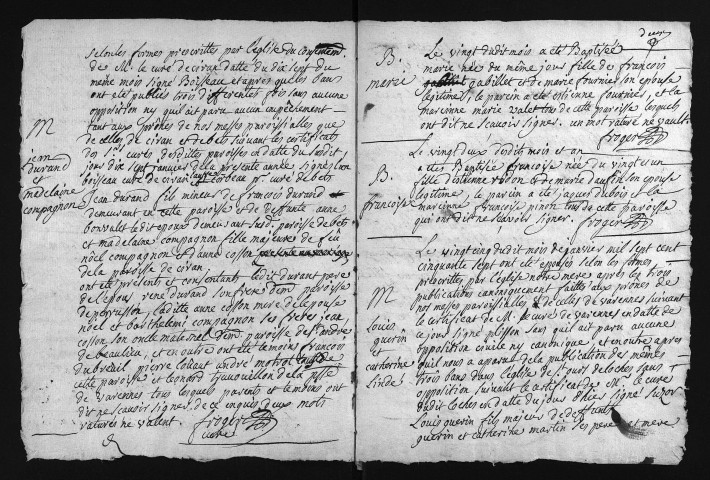 selon les formes prescrittes par l'eglise du
de M. le curé de ciran datté du dix sept du
meme mois signé Boiseau et apres que les bans
ont eté publiés trois differentes fois sans aucune
opposition ny qu'il ait paru aucun empechement
tant aux prônes de nos messes paroissialles que
de celles de ciran et de bets suivant les certificats
des srs curés desdittes paroisses en datte du
jour dix sept janvier de la presente année signés
boiseau curé de ciran corbeau pr. curé de bets
Jean durand fils mineur de francois durand et
demeurant en cette paroisse et de deffunte anne
bonvalet le dit epoux demeurant susd. paroisse de bets
et madelaine compagnon fille majeure de feu
noel compagnon et d'anne cosson
de la paroisse de ciran.
ont eté presents et consentants ledit durand pere
de l'epous rené durand son frere dem. paroisse
de perusson, laditte anne cosson mere de l'epouse
noel et barthelemi compagnon ses freres jean
cosson son oncle dem. paroisse de st andré
de beaulieu, et en outre ont eté temoins francois
dubreuil pierre andré
cette paroisse et leonard de la psse
de varennes tous lesquels parents et temoins ont
dit ne scavoir signer. de ce enquis deux mots
raturés ne valent. froger
curé
M
jean
durand
et
madelaine
compagnon
deux
B.
marie
Le vingt dudit mois a eté Baptisée
marie née du meme jour fille de francois
gabillet et de marie fournier son epouse
legitime, le parein a eté estienne fournier, et la
marcinne marie valet tous de cette paroisse lesquels
ont dit ne scavoir signer. un mot raturé ne vault.
froger
B.
francoise
Le vingt deux dudit mois et an
a eté Baptisée francoise née du vingt et un
fille d'etienne et de marie daufin son epouse
legitime, le parein a eté jacques dubois et la
marcinne francoise pinon tous de cette paroisse
qui ont dit ne scavoir signer. froger
M
Louis
guerin
et
catherine
Le vingt cinq dudit mois de janvier mil sept cent
cinquante sept ont eté epousés selon les formes
prescrites par l'eglise notre mere apres les trois
publications canoniquement faittes aux prônes de
nos messes paroissialles et de celles de varennes suivant
le certificat de M. le curé de varennes en datte de
ce jour signé plisson sans qu'il ait paru aucune
opposition civile ny canonique, et en outre apres
qu'il nous a aparu de la publication des memes
trois bans dans l'eglise de st ours de loches sans
opposition suivant le certificat de M. le curé
dudit loches en datte du jour d'hier signé
Louis guerin fils majeur de deffunts
guerin et catherine martin ses pere et mere